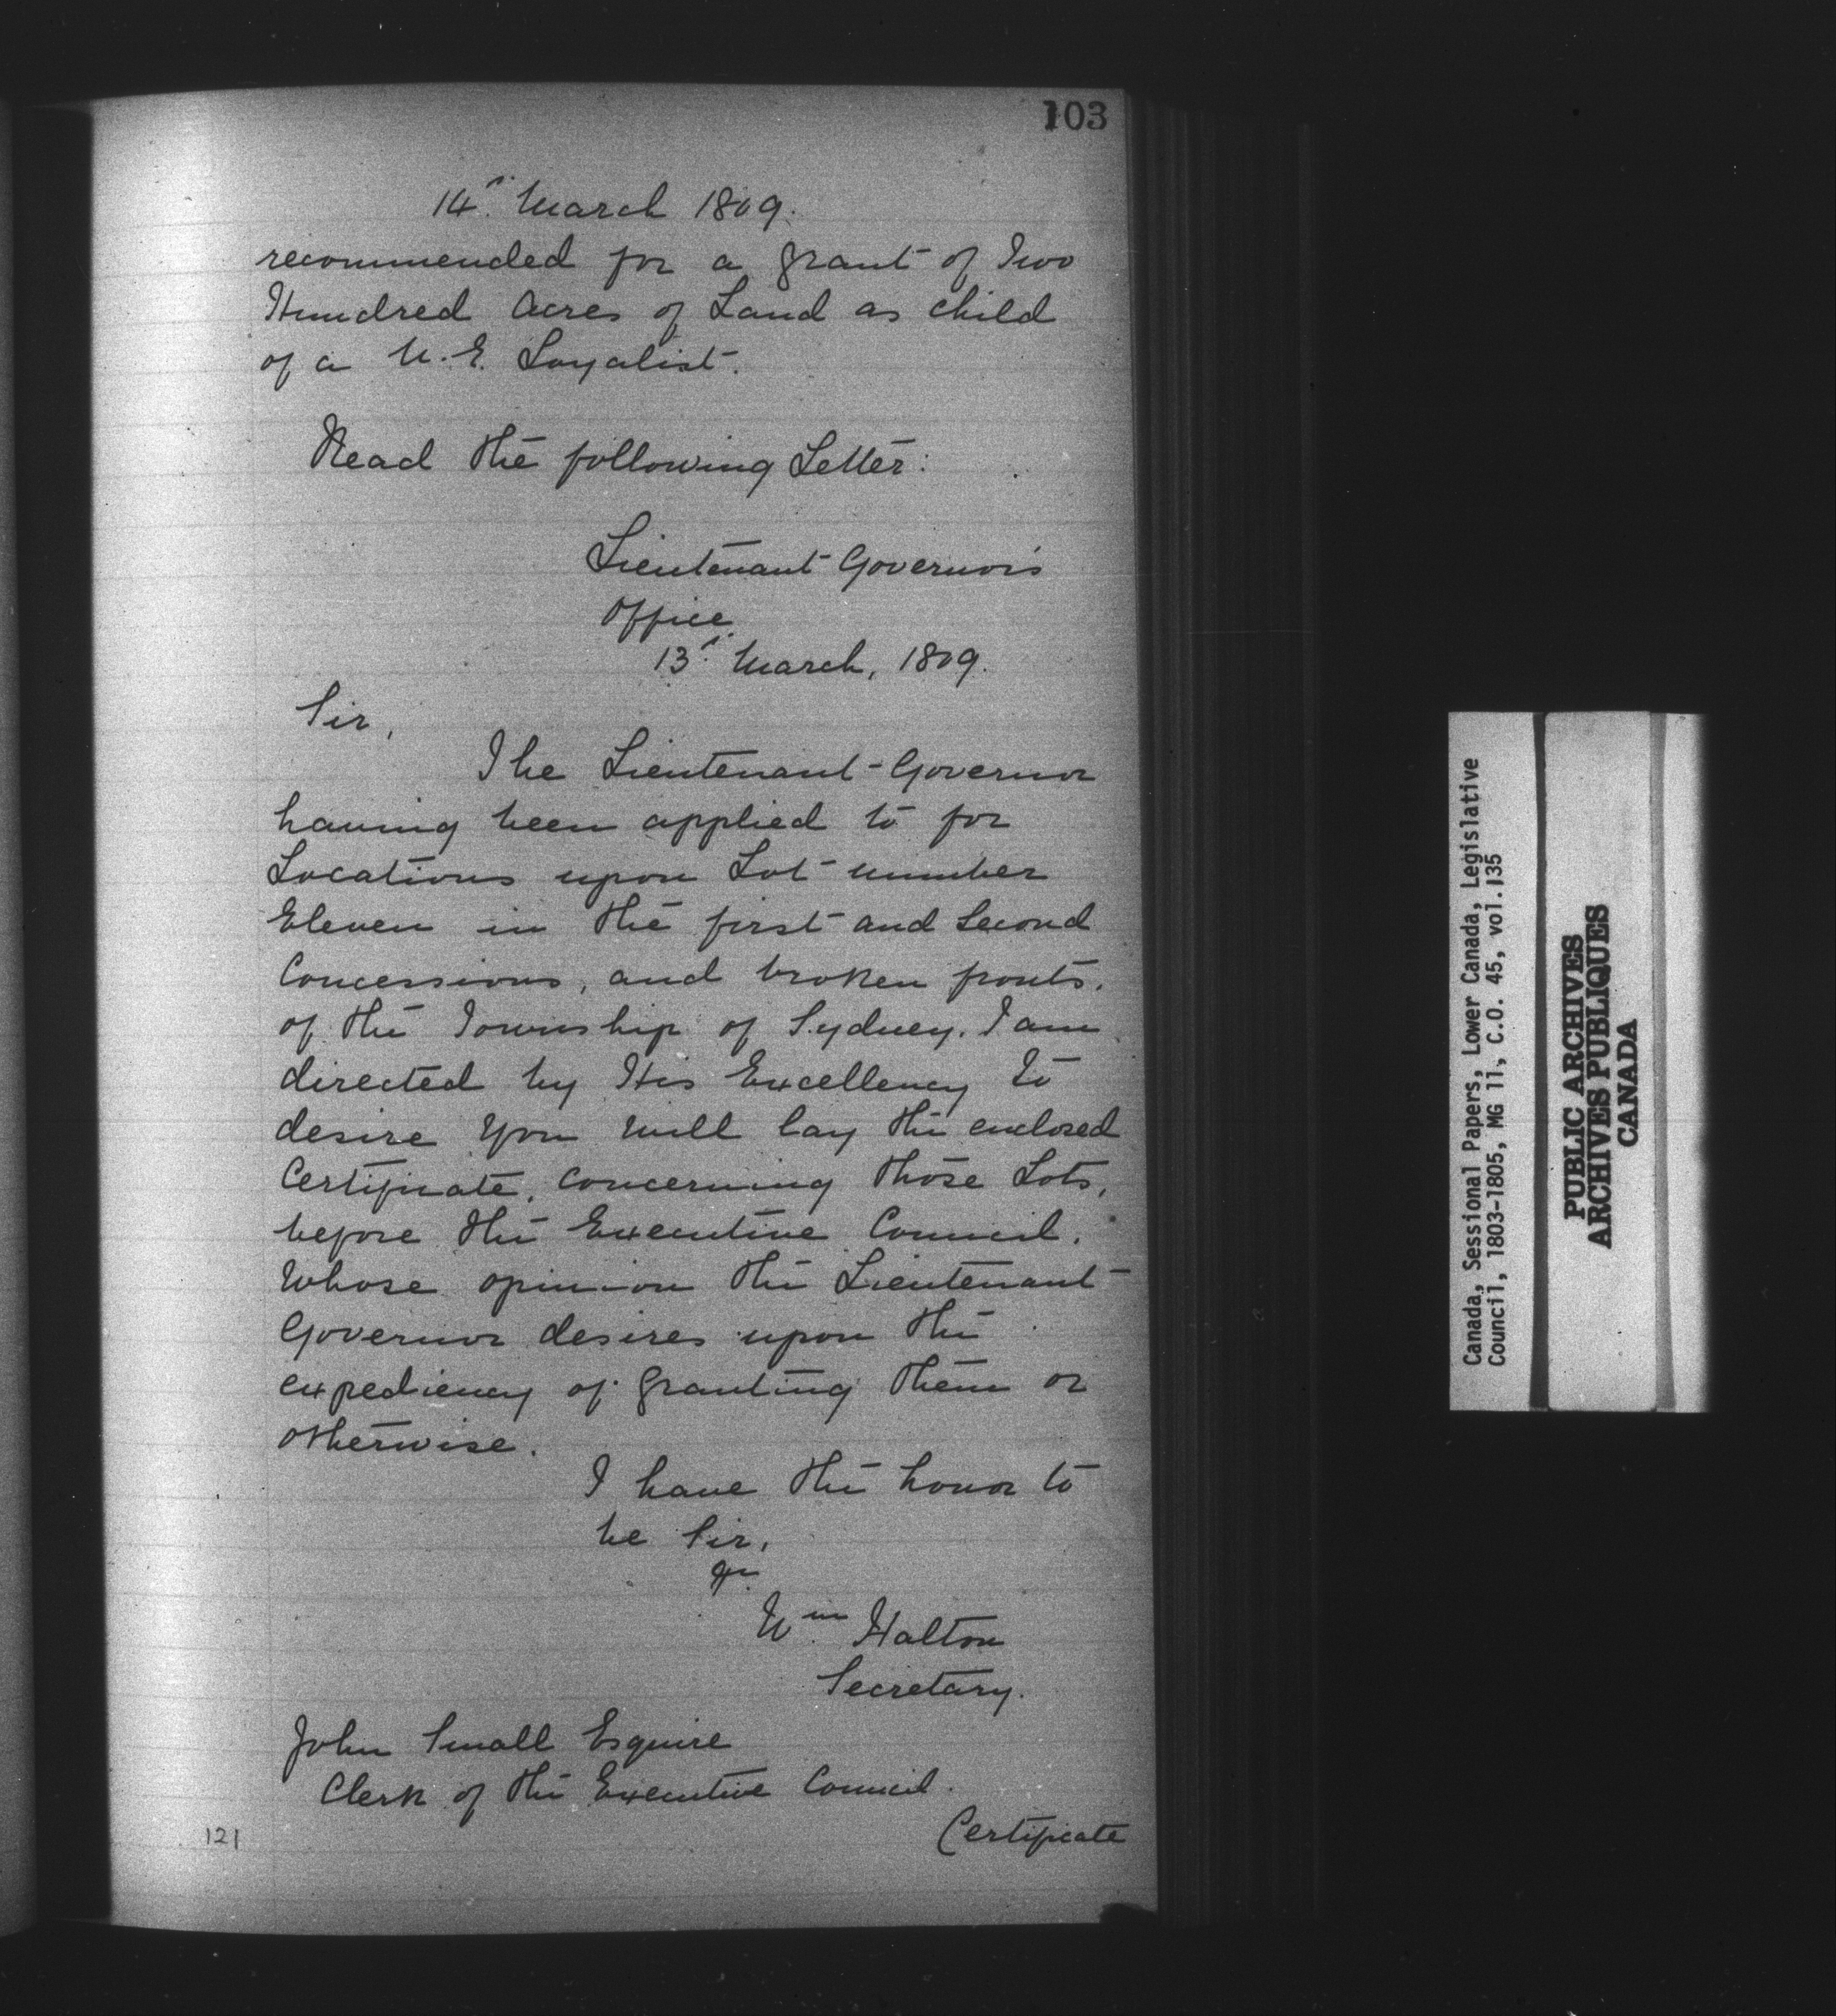 103
14th March 1809.
recommended for a grant of Two
Hundred Acres of Land as child
of a U.E. Loyalist.
Read the following Letter:
Lieutenant Governor's
Office
13th March, 1809.
Sir,
The Lieutenant-Governor
having been applied to for
Locations upon Lot number
Eleven in the first and Second
Concessions, and broken fronts.
of the Township of Sydney. I am
directed by His Excellency to
desire You will lay the enclosed
Certificate, concerning those Lots,
before the Executive Council.
Whose opinion the Lieutenant
Governor desires upon the
expediency of Granting them or
otherwise.
I have the honor to
be Sir,
&c
Wm Halton
Secretary.
John Small Esquire
Clerk of the Executive Council.
121
Certificate
Canada, Sessional Papers, Lower Canada, Legislative
Council, 1803-1805, MG 11, C.O. 45, vol.135
PUBLIC ARCHIVES
ARCHIVES PUBLIQUES
CANADA